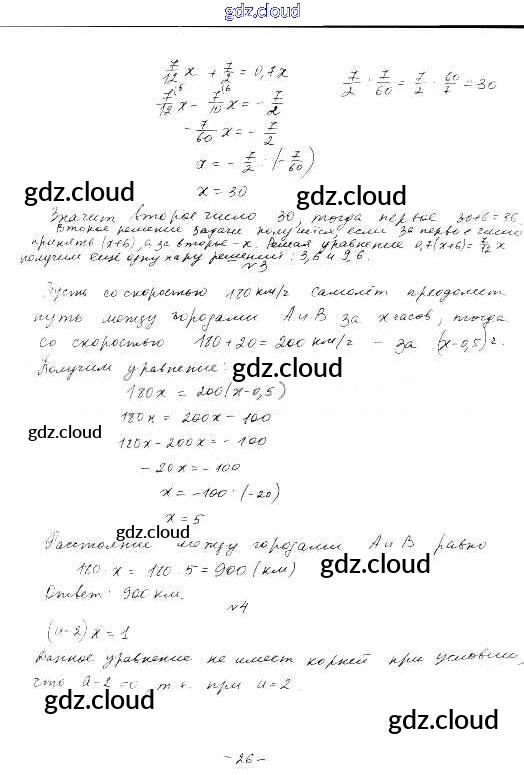 gdz.cloud
7/12 x + 7/2 = 0,7x
7/2 : 7/60 = 7/2 · 60/7 = 30
7/12 x - 7/10 x = - 7/2
- 7/60 x = - 7/2
x = - 7/2 : (- 7/60)
x = 30
gdz.cloud
gdz.cloud
Значит второе число 30, тогда первое 30+6=36.
Второе решение задачи получится, если за первое число
принять (x+6), а за второе - x. Решая уравнение 0,7(x+6) = 7/12 x
получим ещё одну пару решений:
№3
Пусть со скоростью 180 км/ч самолёт преодолеет
путь между городами А и В за x часов, тогда
со скоростью 180+20=200 км/ч - за (x-0,5) ч.
Получим уравнение:
gdz.cloud
180x = 200(x-0,5)
180x = 200x - 100
gdz.cloud
180x - 200x = - 100
- 20x = - 100
x = -100 : (-20)
x = 5
gdz.cloud
Расстояние между городами А и В равно
180 · x = 180 · 5 = 900 (км)
gdz.cloud
Ответ: 900 км.
№4
(a-2) x = 1
Данное уравнение не имеет корней при условии,
что a-2=0, т.е. при a=2.
gdz.cloud
gdz.cloud
- 26 -